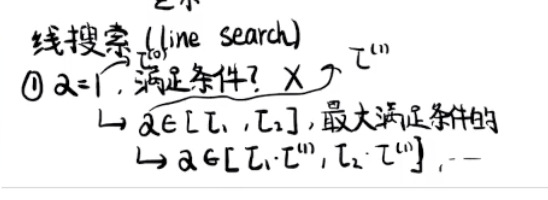 线搜索 (line search)
τ⁽⁰⁾
① α=1, 满足条件? × τ⁽¹⁾
↳ α∈[τ₁, τ₂], 最大满足条件的
↳ α∈[τ₁·τ⁽¹⁾, τ₂·τ⁽¹⁾], ...